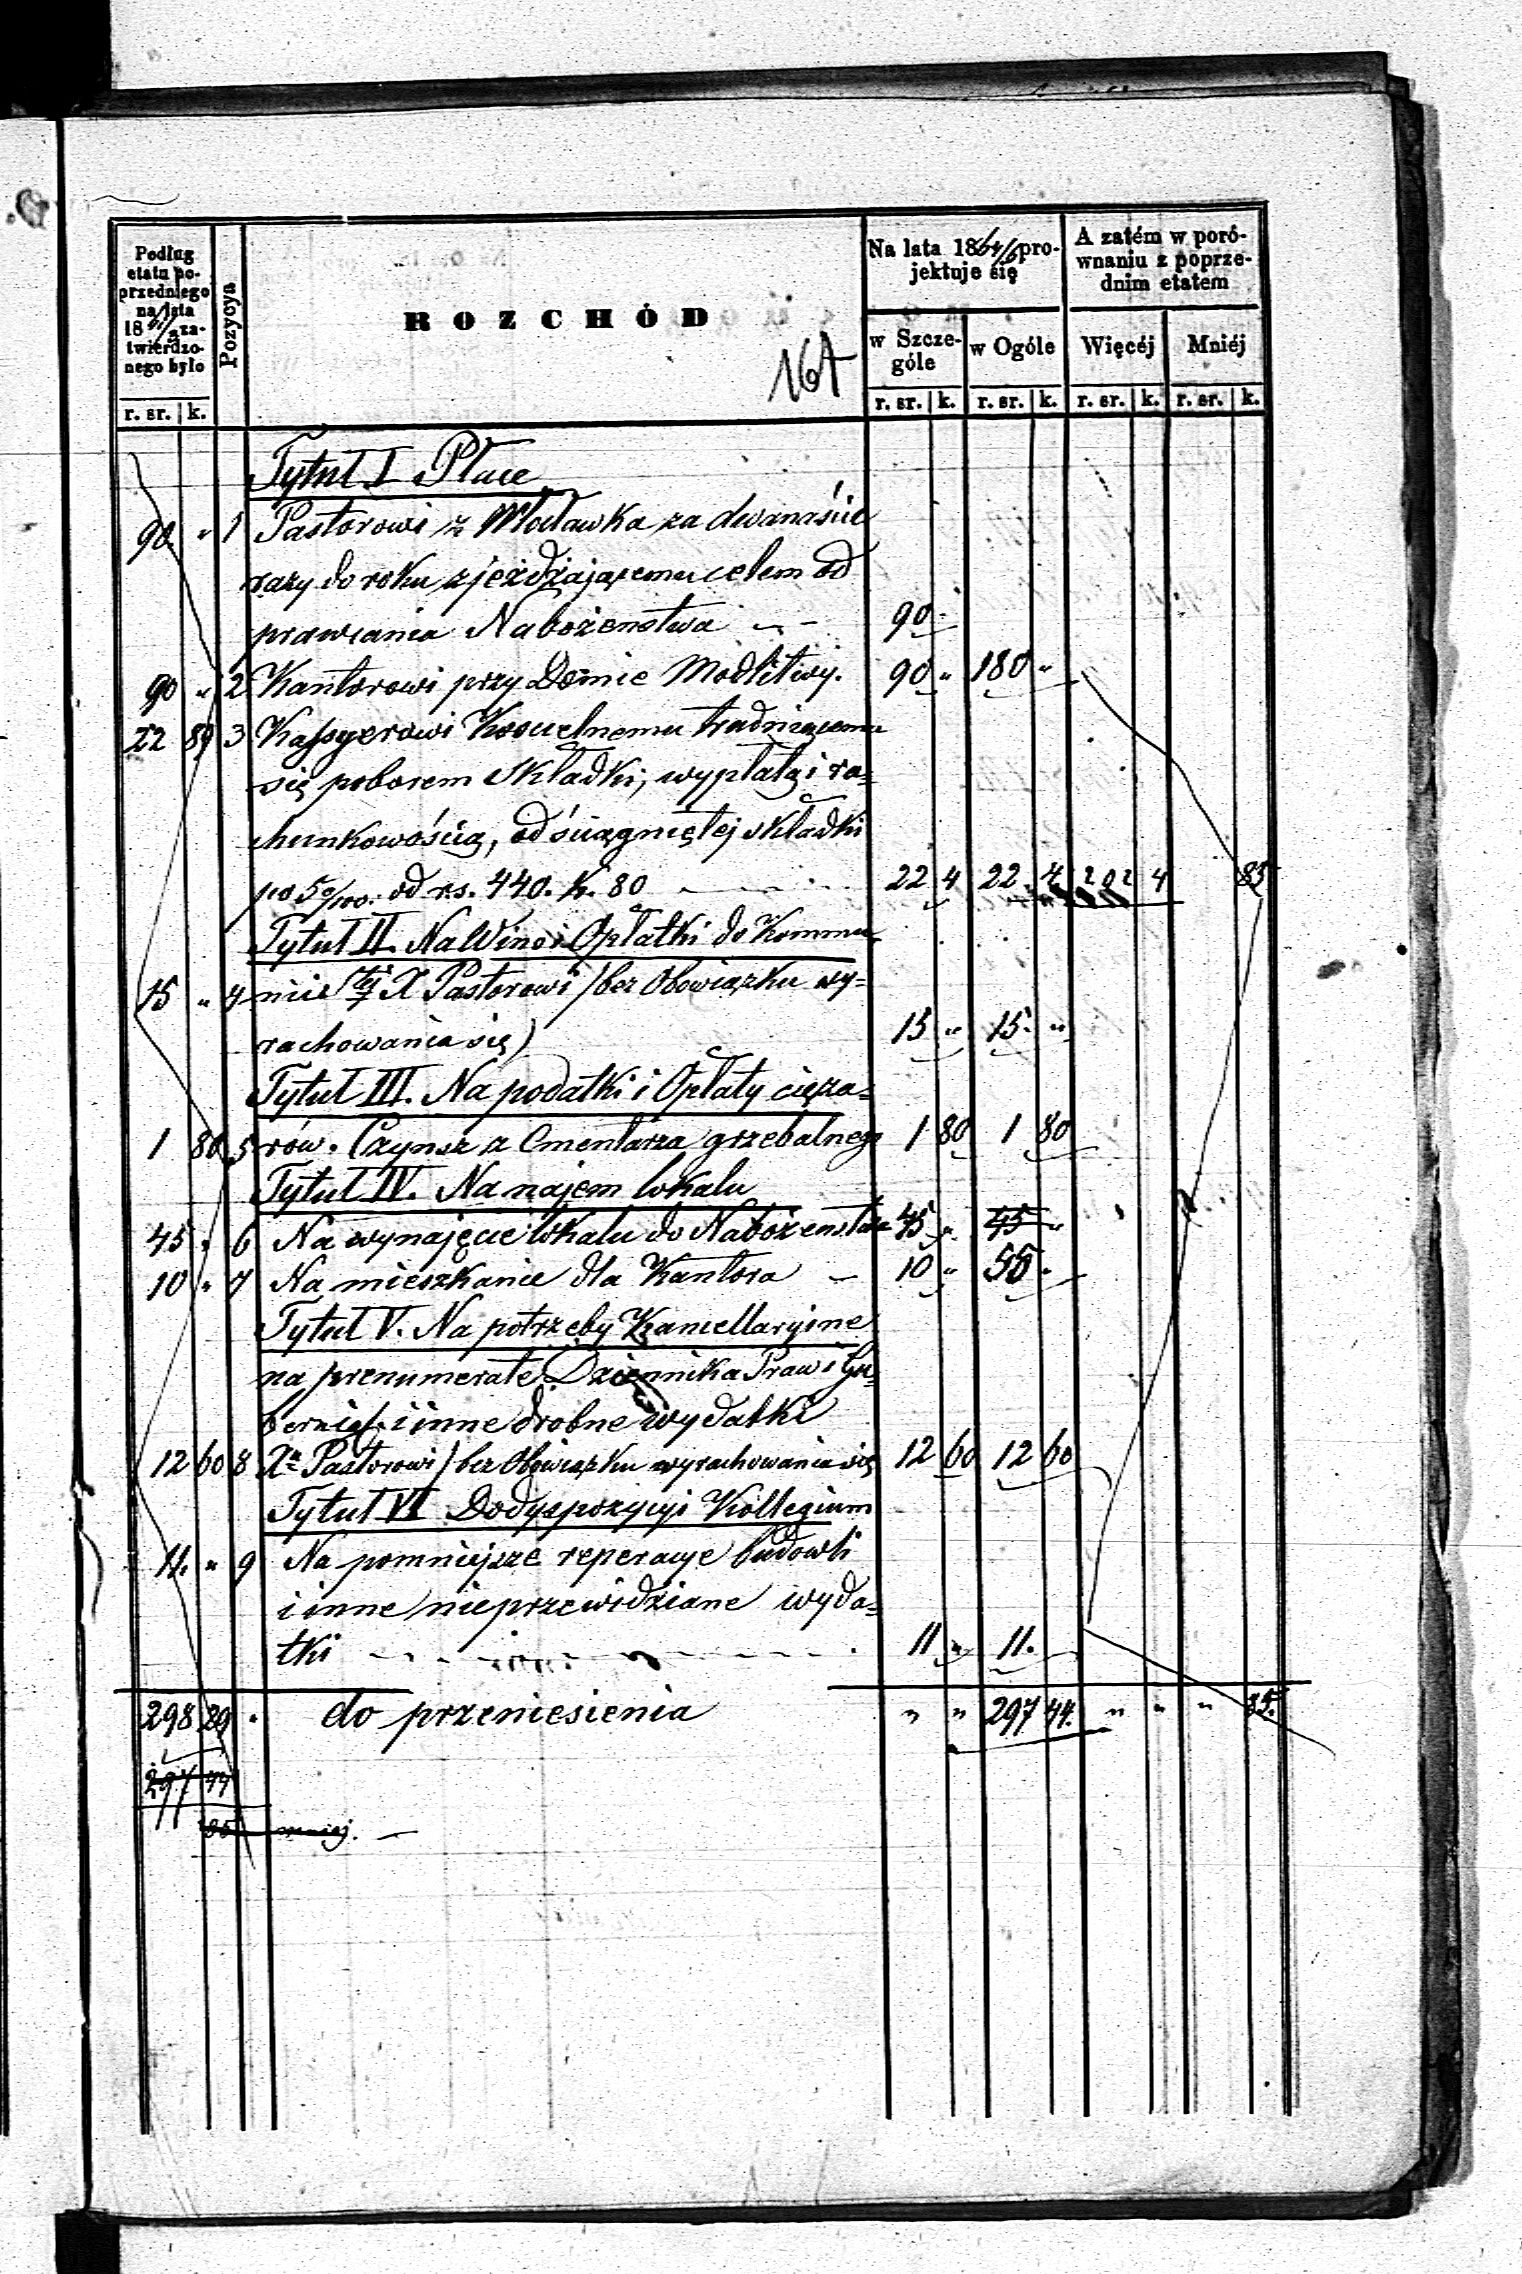 Podług
etatu po-
przedniego
na lata
18 za-
twierdzo-
nego było
r. sr. k.
Pozycya
ROZCHÓD
167
Na lata 1864/6 pro-
jektuje się
w Szcze-
góle
w Ogóle
A zatém w poró-
wnaniu z poprze-
dnim etatem
Więcéj
Mniéj
r. sr. k. r. sr. k. r. sr. k. r. sr. k.
Tytuł I Płace
90 " 1 Pastorowi z Włocławka za dwanaście
razy do roku zjeżdżającemu celem od
prawiania Nabożenstwa - - 90 "
90 " 2 Kantorowi przy Domie Modlitwy. 90 " 180 "
22 89 3 Kassyerowi Koscielnemu trudniącemu
się poborem Składki, wypłatą i ra=
chunkowością, od ściągniętej składki
po 5 o/100. od rs. 440. k. 80 - - - 22 4 22 4 202 4 85
Tytuł II. Na Wino i Opłatki do Kommu
15 " 4 nii Stéj X Pastorowi / bez Obowiązku wy=
rachowania się) 15 " 15. "
Tytuł III. Na podatki i Opłaty cięża=
1 80 5 rów. Czynsz z Cmentarza grzebalnego 1 80 1 80
Tytuł IV. Na najem lokalu
45 " 6 Na wynajęcie lokalu do Nabożenstwa 45 " 45 "
10 " 7 Na mieszkanie dla Kantora - 10 " 55 "
Tytuł V. Na potrzeby Kancellaryine
na prenumeratę Dziennika Praw i Gu=
berniał. i inne drobne wydatki
12 60 8 Xu Pastorowi / bez Obowiązku wyrachowania się 12 60 12 60
Tytuł VI Do dyspozycyi Kollegium
11. " 9 Na pomniejsze reperacye budowli
i inne nieprzewidziane wyda=
tki - - - 11 " 11.
298 29 " do przeniesienia " " 297 44. " " " 85.
297 44
85 mniej. -